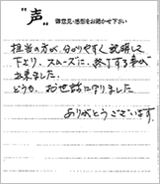 "声" 御意見・感想をお聞かせ下さい
担当の方が、分りやすく説明して
下より、スムーズに、終了する事が
出来ました。
どうも、お世話に守りました
ありがとうございます。